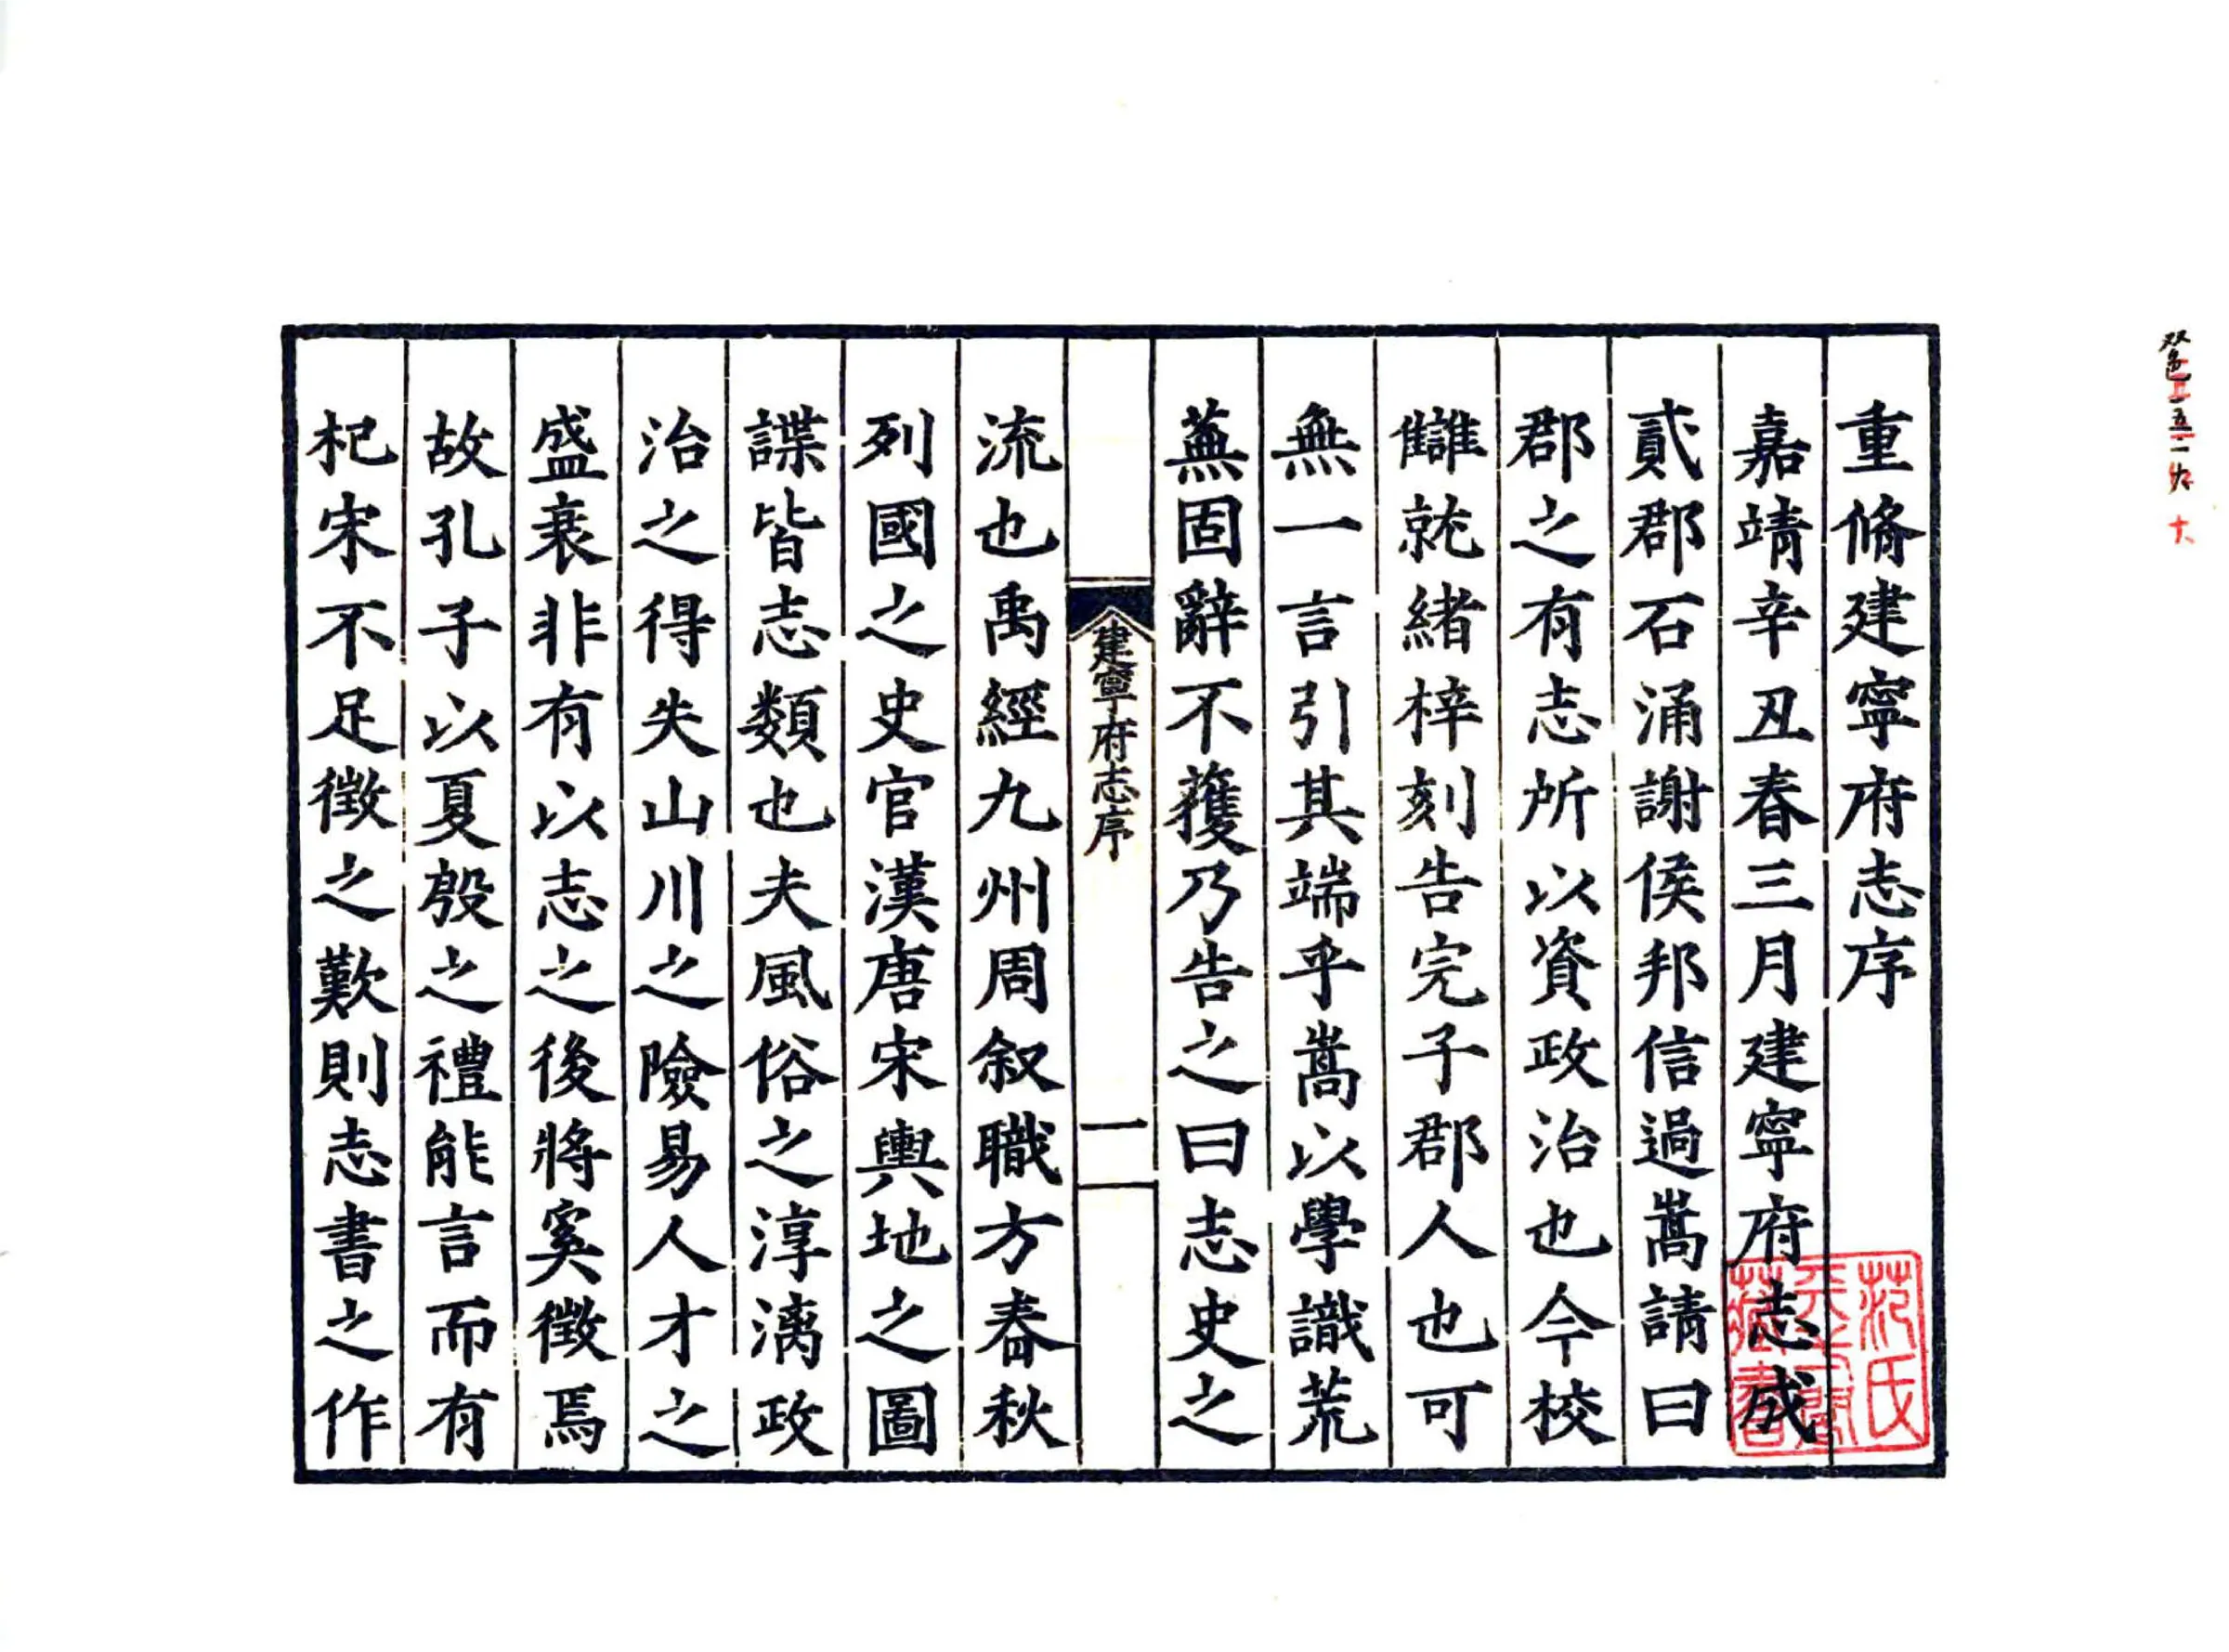 重脩建寧府志序
嘉靖辛丑春三月建寧府志成
貳郡石涌謝侯邦信過嵩請曰
郡之有志所以資政治也今校
讎就緒梓刻告完子郡人也可
無一言引其端乎嵩以學識荒
蕪固辭不獲乃告之曰志史之
建寧府志序
一
流也禹經九州周叙職方春秋
列國之史官漢唐宋輿地之圖
諜皆志類也夫風俗之淳漓政
治之得失山川之險易人才之
盛衰非有以志之後將奚徵焉
故孔子以夏殷之禮能言而有
杞宋不足徵之歎則志書之作
范氏
天一閣
藏書